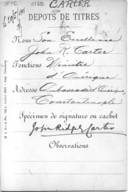 CARTER
DÉPOTS DE TITRES
Nom Son Excellence
John R. Carter
Fonctions Ministre
d'Amérique
Adresse
Constantinople
Spécimen de signature ou cachet
John Ridgely Carter
Observations